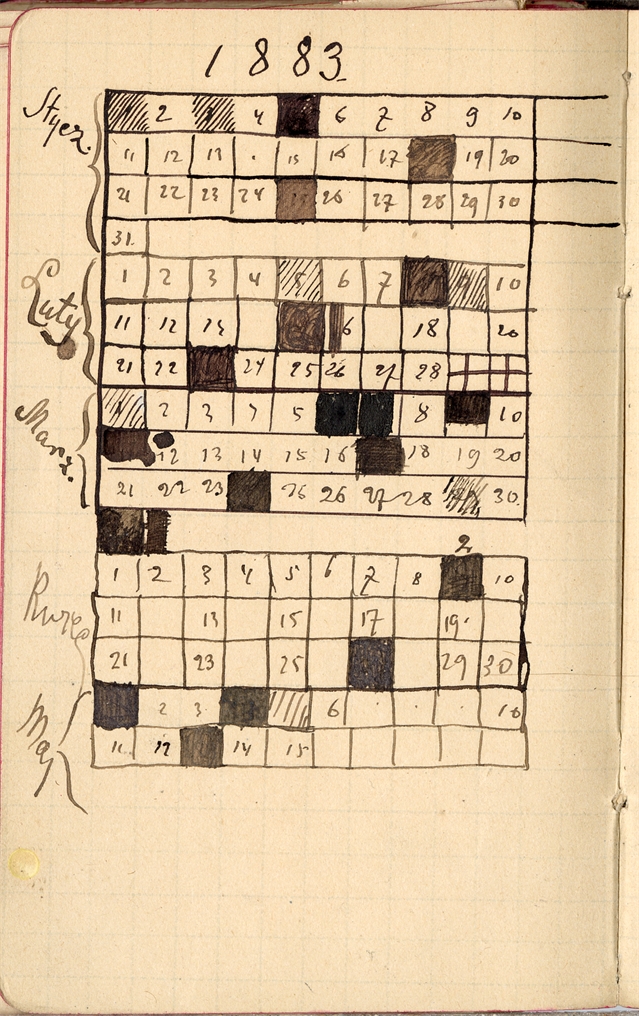 1883
Stycz.
2 4 6 7 8 9 10
11 12 13 . 15 16 17 19 20
21 22 23 24 26 27 28 29 30
31
Luty
1 2 3 4 5 6 7 10
11 12 13 6 18 20
21 22 24 25 26 27 28
Marz.
1 2 3 5 8 10
12 13 14 15 16 18 19 20
21 22 23 26 27 28 30
2
1 2 3 4 5 6 7 8 10
11 13 15 17 19.
21 23 25 29 30
Maj
2 3 6 . . . 10
11 12 14 15